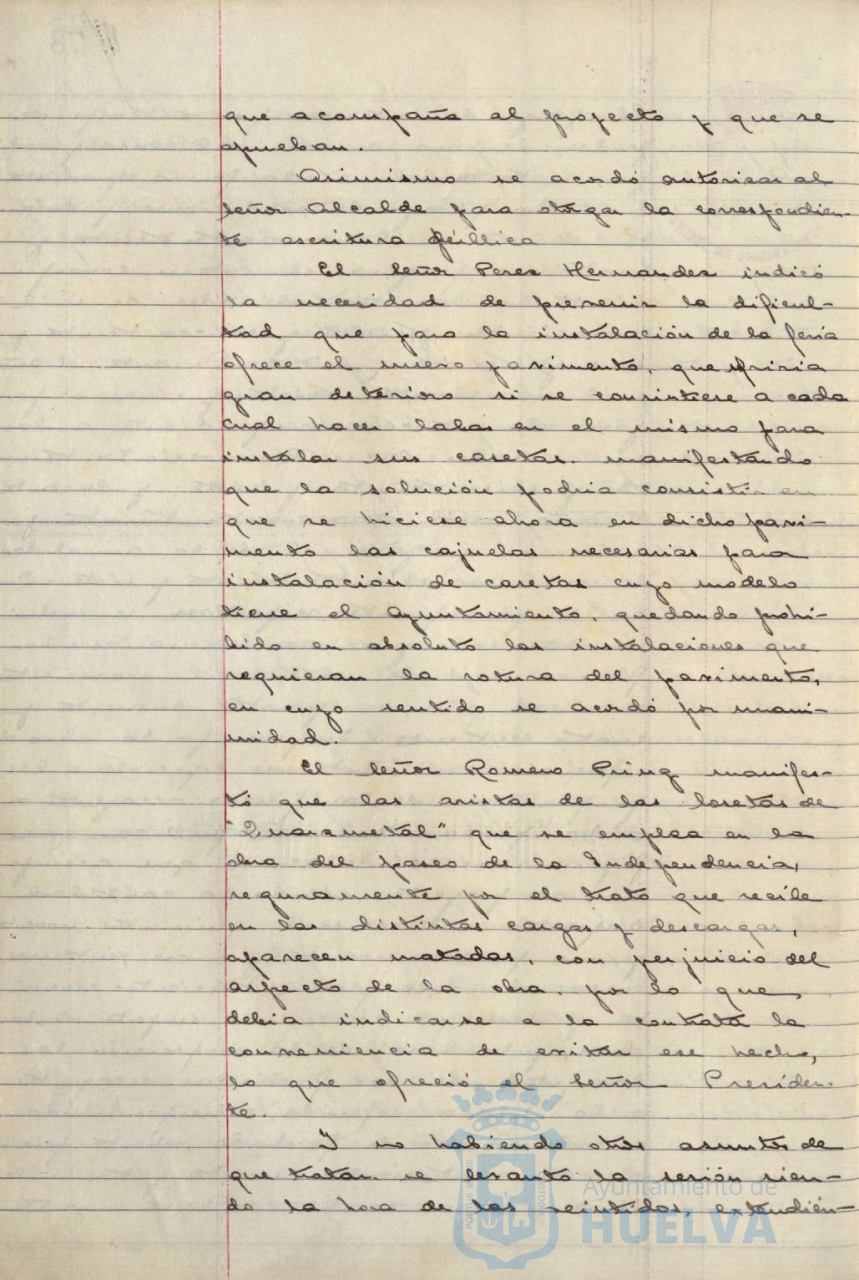 que acompaña al proyecto y que se
aprueban.
Asimismo se acordó autorizar al
señor Alcalde para otorgar la correspondien-
te escritura pública
El señor Perez Hernandez indicó
la necesidad de prevenir la dificul-
tad que para la instalación de la feria
ofrece el nuevo pavimento, que sufriria
gran deterioro si se consintiese a cada
cual hacer labas en el mismo para
instalar sus casetas. manifestando
que la solución podria consistir en
que se hiciese ahora en dicho pavi-
mento las cajuelas necesarias para
instalación de casetas cuyo modelo
tiene el Ayuntamiento, quedando prohi-
bido en absoluto las instalaciones que
requieran la rotura del pavimento,
en cuyo sentido se acordó por unani-
midad.
El señor Romero manifes-
tó que las aristas de las losetas de
que se emplea en la
obra del paseo de la Independencia,
seguramente por el trato que recibe
en las distintas cargas y descargas,
aparecen matadas, con perjuicio del
aspecto de la obra. por lo que,
debia indicarse a la contrata la
conveniencia de evitar ese hecho,
lo que ofreció el señor Presiden-
te.
Y no habiendo otros asuntos de
que tratar se levantó la sesión sien-
do la hora de las veintidos, extendién-
Ayuntamiento de
HUELVA